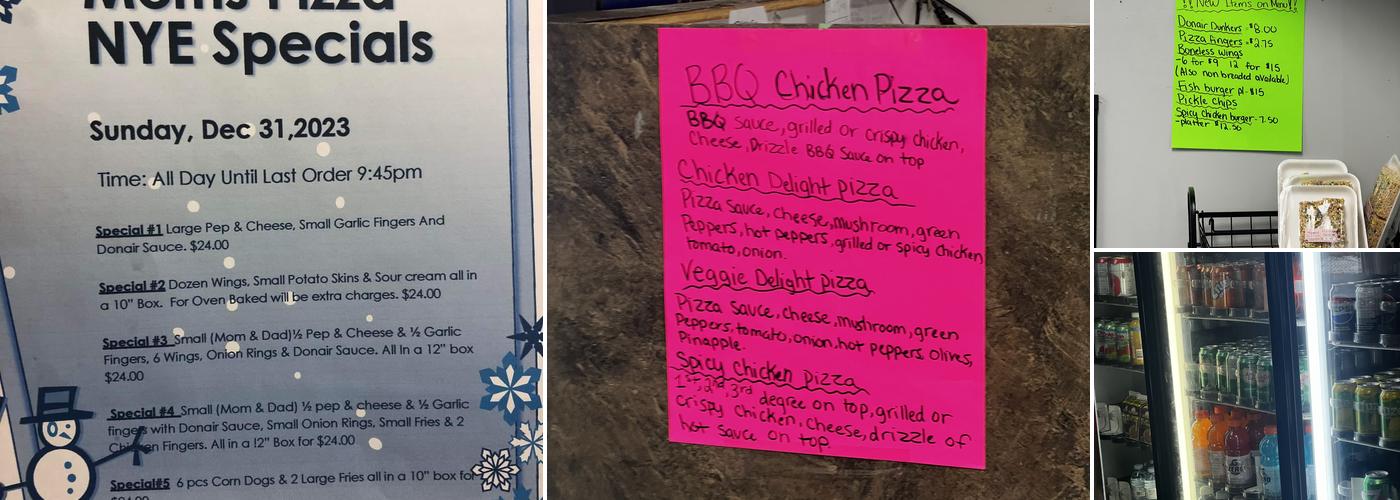 Moms Pizza
NYE Specials
Sunday, Dec 31,2023
Time: All Day Until Last Order 9:45pm
Special #1 Large Pep & Cheese, Small Garlic Fingers And
Donair Sauce. $24.00
Special #2 Dozen Wings, Small Potato Skins & Sour cream all in
a 10" Box. For Oven Baked will be extra charges. $24.00
Special #3 Small (Mom & Dad)½ Pep & Cheese & ½ Garlic
Fingers, 6 Wings, Onion Rings & Donair Sauce. All In a 12" box
$24.00
Special #4 Small (Mom & Dad) ½ pep & cheese & ½ Garlic
fingers with Donair Sauce, Small Onion Rings, Small Fries & 2
Chicken Fingers. All in a 12" Box for $24.00
Special#5 6 pcs Corn Dogs & 2 Large Fries all in a 10" box for
$24.00
BBQ Chicken Pizza
BBQ Sauce, grilled or crispy chicken,
Cheese, Drizzle BBQ Sauce on top
Chicken Delight pizza
Pizza Sauce, cheese, mushroom, green
Peppers, hot peppers, grilled or spicy chicken
tomato, onion.
Veggie Delight pizza
Pizza sauce, cheese, mushroom, green
Peppers, tomato, onion, hot peppers, olives,
Pinapple.
Spicy chicken pizza
1st, 2nd, 3rd degree on top, grilled or
crispy chicken, cheese, drizzle of
hot sauce on top.
!!New Items on Menu!!
Donair Dunkers -$8.00
Pizza fingers -$2.75
Boneless wings
-6 for $9 12 for $15
(Also non breaded available)
Fish burger pl-$15
Pickle chips
Spicy chicken burger- 7.50
-platter $12.50